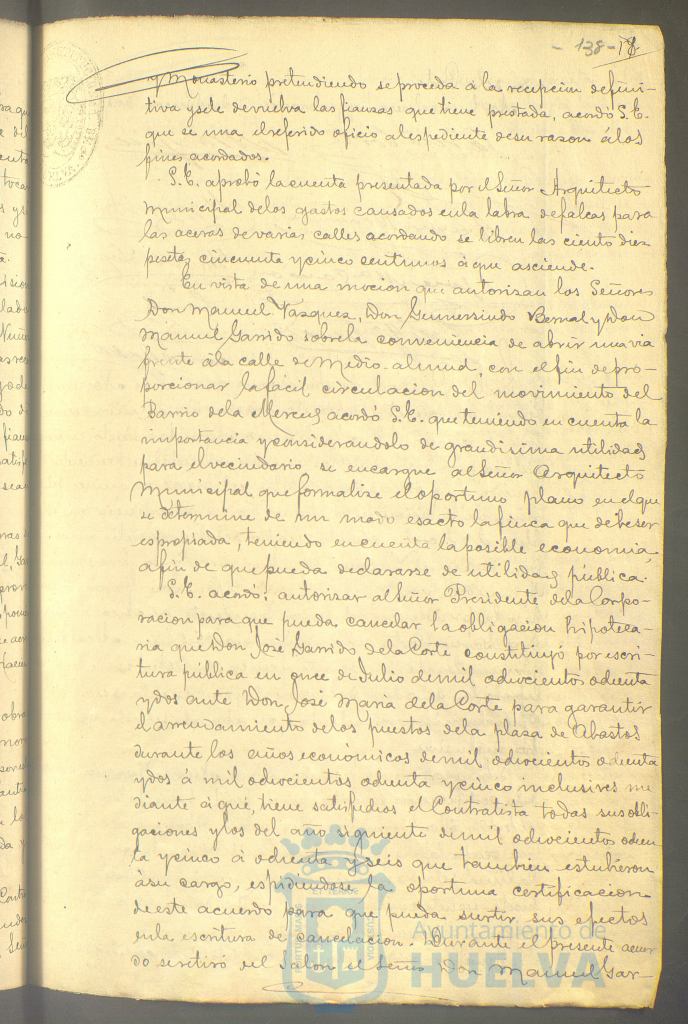 - 138 - 18
y Monasterio pretendiendo se proceda á la recepcion defini-
tiva y se le devuelva las fianzas que tiene prestada, acordó S.E.
que se una el referido oficio al espediente de su razon á los
fines acordados.
S.E. aprobó la cuenta presentada por el Señor Arquitecto
Municipal de los gastos causados en la labra de falcas para
las aceras de varias calles acordando se libren las ciento diez
pesetas cincuenta y cinco centimos á que asciende.
En vista de una mocion que autorizan los Señores
Don Manuel Vazquez, Don Gumersindo Bernal y Don
Manuel Garrido sobre la conveniencia de abrir una via
frente á la calle de Medio-almud, con el fin de pro-
porcionar la fácil circulacion del movimiento del
Barrio de la Merced acordó S.E. que teniendo en cuenta la
importancia y considerandolo de grandisima utilidad
para el vecindario se encargue al Señor Arquitecto
Municipal que formalize el oportuno plano en el que
se determine de un modo esacto la finca que debe ser
espropiada, teniendo en cuenta la posible economia,
a fin de que pueda declararse de utilidad pública.
S.E. acordó: autorizar al Señor Presidente de la Corpo-
racion para que pueda cancelar la obligacion hipoteca-
ria que Don José Garrido de la Corte constituyó por escri-
tura pública en once de Julio de mil ochocientos ochenta
y dos ante Don José Maria de la Corte para garantir
el arrendamiento de los puestos de la plaza de Abastos
durante los años económicos de mil ochocientos ochenta
y dos á mil ochocientos ochenta y cinco inclusives me
diante á que, tiene satisfechos el Contratista todas sus obli-
gaciones y los del año siguiente de mil ochocientos ochen
ta y cinco á ochenta y seis que tambien estubieron
á su cargo, espidiendose la oportuna certificacion
de este acuerdo para que pueda surtir sus efectos
en la escritura de cancelacion. Durante el presente acuer
do se retiró del Salon el Señor Don Manuel Gar-
Ayuntamiento de
HUELVA